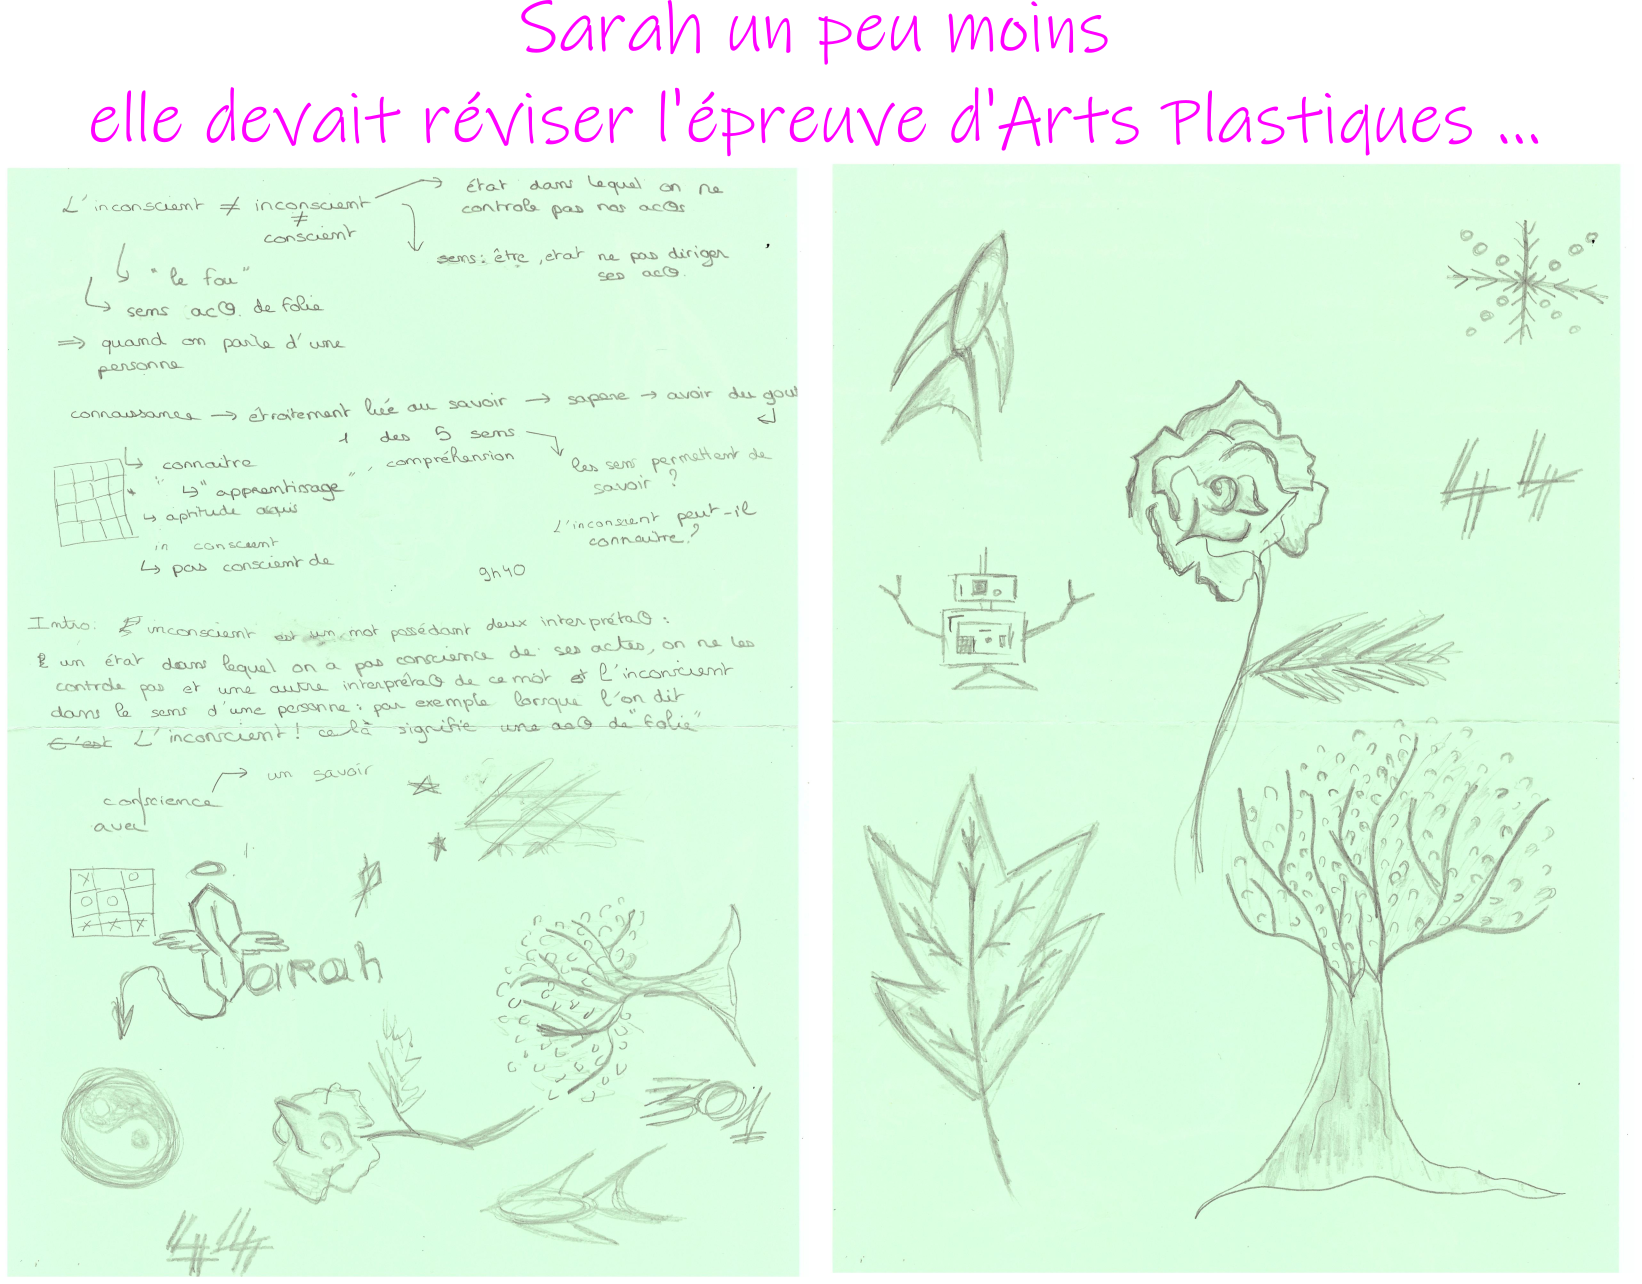 Sarah un peu moins
elle devait réviser l'épreuve d'Arts Plastiques ...
L'inconscient ≠ inconscient
≠
conscient
état dans lequel on ne
controle pas nos acOs
sens: être, etat ne pas diriger
ses acO.
"le fou"
sens acO. de folie
⇒ quand on parle d'une
personne
connaissance → étroitement liée au savoir → sapere → avoir du gout
1 des 5 sens
compréhension
les sens permettent de
savoir ?
connaitre
"apprentissage"
aptitude acquis
in conscient
pas conscient de
L'inconscient peut-il
connaitre?
9h40
Intro: L'inconscient est un mot possédant deux interprétaO :
un état dans lequel on a pas conscience de ses actes, on ne les
controle pas et une autre interprétaO de ce mot et l'inconscient
dans le sens d'une personne : par exemple lorsque l'on dit
C'est L'inconscient! ce là signifie une acO de "folie"
un savoir
conscience
avec
X O
O O
X X X
Sarah
301
44
44